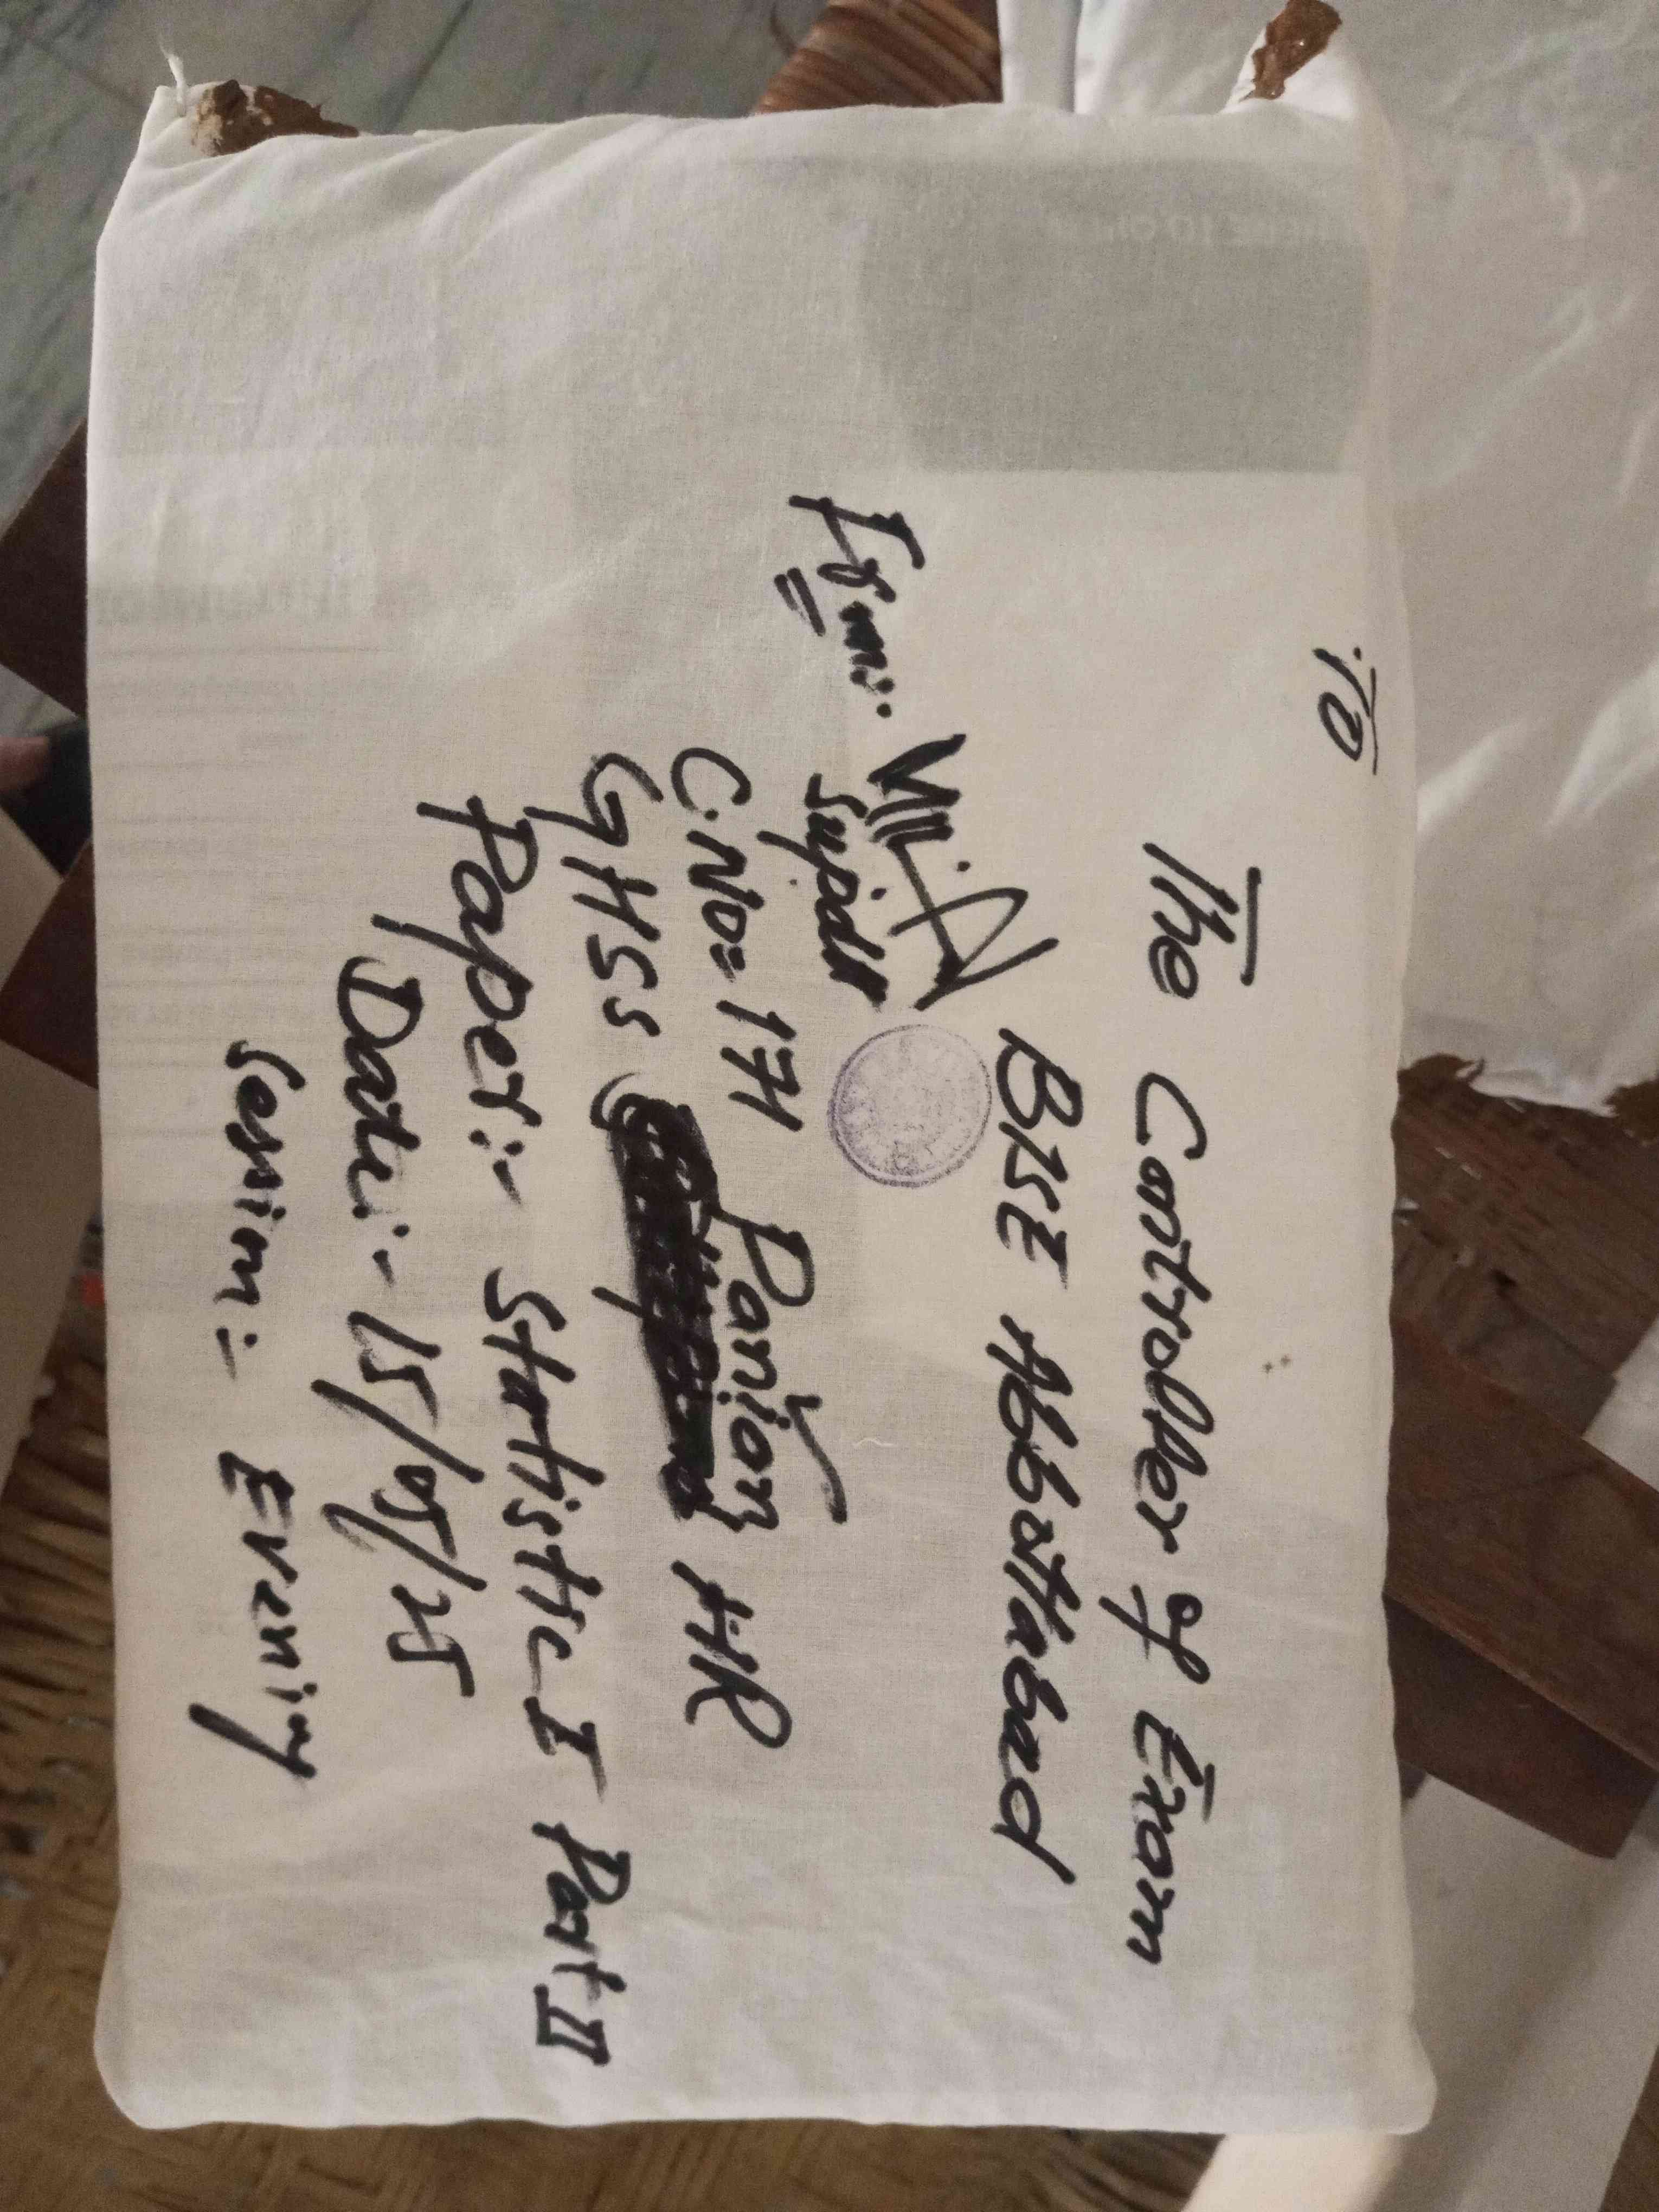 To
The Controller of Exam
BISE Abbottabad
From:
Supdt
C.No= 174
GHSS Panian HR
Paper:- Statistic-I Part II
Date:- 15/05/25
Session:- Evening